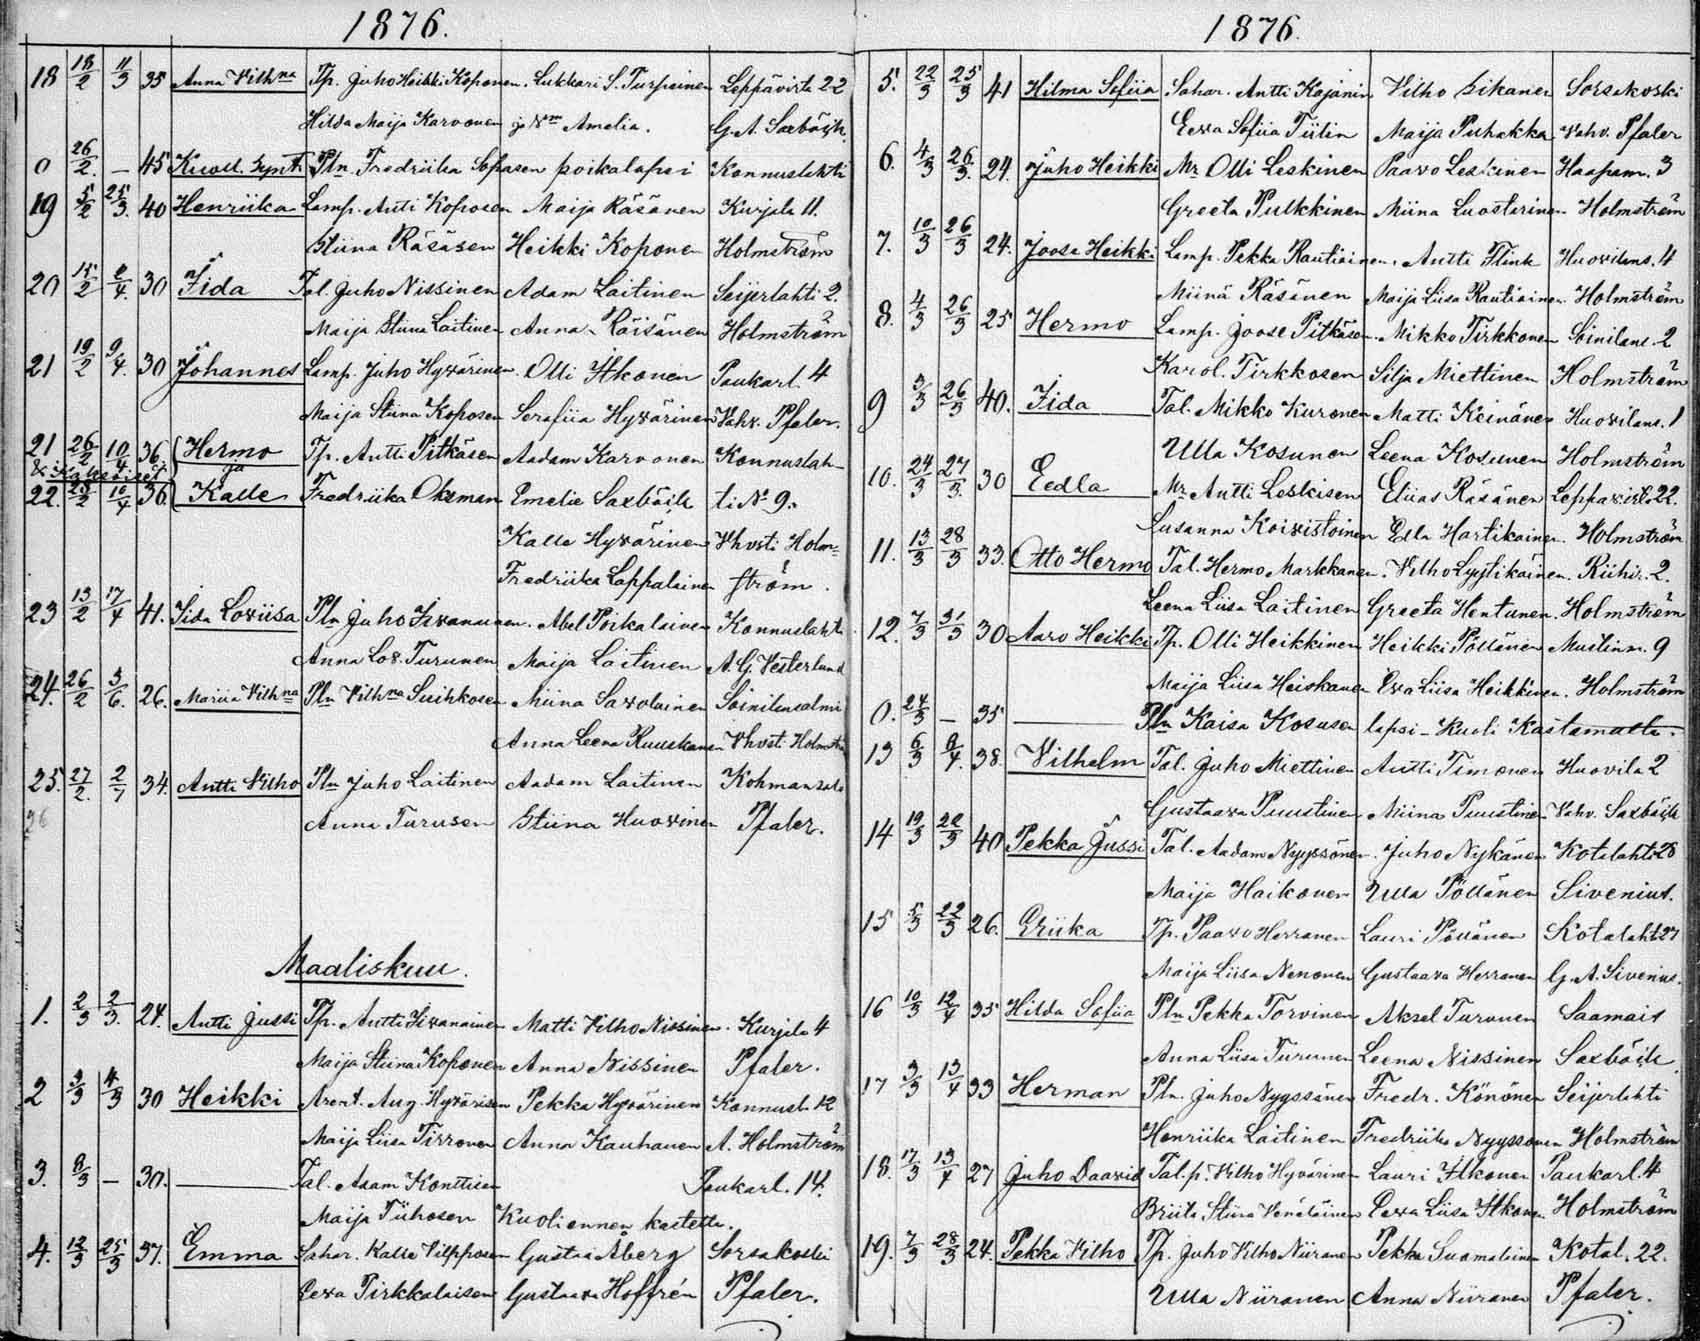 1876.
18 18/2 11/3 35 Anna Vilhna Tp. Juho Heikki Koponen. Lukkari S. Turpeinen Leppävirta 22
Hilda Maija Karvonen ja Vm Amelia. G. A. Saxbäck
0 26/2. — 45 Kuoll. Synt. Pln. Fredriika Sopasen poikalapsi Konnuslahti
19 5/2 25/3. 40 Henriika Lamp. Anti Koposen Maija Räsänen Kurjala 11.
Stiina Räsäsen Heikki Koponen Holmström
20 15/2 2/4. 30 Iida Tal. Juho Nissinen Adam Laitinen Seijerlahti 2.
Maija Stiina Laitinen Anna Räisänen Holmström
21 19/2 9/4. 30 Johannes Lamp. Juho Hyvärinen. Olli Itkonen Paukarl. 4
Maija Stiina Koposen Serafiia Hyvärinen Vahv. Pfaler.
21 26/2 10/4 36. Hermo Tp. Antti Pitkäsen Aadam Karvonen Konnuslah-
& Kaksoiset ja
22. 26/2 10/4 36. Kalle Fredriika Oksman Emelie Saxbäck ti No 9.
Kalle Hyvärinen Vhvsti Holm-
Fredriika Lappalainen ström.
23 13/2 17/4 41. Iida Loviisa Pln Juho Iivanainen. Abel Poikalainen Konnuslahti
Anna Lov. Turunen Maija Laitinen A. G. Vesterlund
24. 26/2 3/6. 26. Mariia Vilhna Pln Vilhna Suihkosen Miina Savolainen Soinilansalmi
Anna Leena Ruuskanen Vhvsti Holmstr
25. 27/2. 2/7 34. Antti Vilho Pln Juho Laitinen Aadam Laitinen Kohmansalo
26 Anna Turusen Stiina Huovinen Pfaler.
Maaliskuu.
1. 2/3 2/3. 24. Antti Jussi Tp. Antti Iivanainen Matti Vilho Nissinen. Kurjala 4
Maija Stiina Koponen Anna Nissinen Pfaler.
2 3/3 4/3 30 Heikki Arent. Aug Hyvärisen Pekka Hyvärinen Konnusl. 12
Maija Liisa Tirronen Anna Kauhanen A. Holmström
3. 8/3 — 30. — Tal. Adam Konttisen Paukarl. 14.
Maija Tiihosen Kuoli ennen kastetta.
4. 12/3 25/3 37. Emma Sahar. Kalle Vilpposen Gustaa Åberg Sorsakoski
Eeva Pirkkalaisen Gustaava Hoffrén Pfaler.
1876.
5. 22/3 25/3 41 Hilma Sofiia Sahar. Antti Kajanin Vilho Sikanen Sorsakoski
Eeva Sofiia Tiilin Maija Puhakka Vahv. Pfaler
6. 4/3 26/3. 24. Juho Heikki Mr. Olli Leskinen Paavo Leskinen Haapam. 3
Greeta Pulkkinen Miina Luostarinen Holmström
7. 10/3 26/3 24. Joosa Heikki Lamp. Pekka Rautiainen. Antti Flink Huovilans. 4
Miinä Räsänen Maija Liisa Rautiainen. Holmström
8. 4/3 26/3 25 Hermo Lamp. Joose Pitkäsen. Mikko Tirkkonen Soinilans. 2
Karol. Tirkkosen Silja Miettinen Holmström
9 3/3 26/3 40. Iida Tal. Mikko Kuronen Matti Keinänen Huovilans. 1
Ulla Kosunen Leena Kosunen Holmström
10. 24/3 27/3. 30 Eedla Mr. Antti Leskisen Eliias Räsänen Leppävirt. 22.
Susanna Koivistoinen Edla Hartikainen. Holmström
11. 13/3 28/3 33. Otto Hermo Tal. Hermo Markkanen. Vilho Lyytikäinen. Riihir. 2.
Leena Liisa Laitinen Greeta Hentunen. Holmström
12. 7/3 31/3 30 Aaro Heikki Tp. Olli Heikkinen Heikki Pöllänen Mustinm. 9
Maija Liisa Heiskanen Eva Liisa Heikkinen. Holmström
0. 24/3 — 35 — Pln Kaisa Kosusen lapsi – Kuoli Kastamatta.
13 6/3 9/4. 38. Vilhelm Tal. Juho Miettinen Antti Timonen Huovila 2
Gustaava Puustinen Miina Puustinen Vahv. Saxbäck
14 19/3 22/3 40 Pekka Jussi Tal. Aadam Nyyssönen. Juho Nykänen Kotalahti 28
Maija Haikonen Ulla Pöllänen Sivenius.
15 5/3 22/3 26. Eriika Tp. Paavo Herranen Lauri Pöllänen Kotalaht 27
Maija Liisa Nenonen Gustaava Herranen G. A. Sivenius.
16 10/3 12/4 35 Hilda Sofiia Pln Pekka Torvinen Aksel Turunen Saamais
Anna Liisa Turunen Leena Nissinen Saxbäck
17 3/3 13/4 33 Herman Pln. Juho Nyyssönen Fredr. Könönen Seijerlahti
Henriika Laitinen Fredriika Nyyssönen Holmström
18. 17/3 13/4 27 Juho Daavid Tal.p. Vilho Hyvärinen Lauri Itkonen Paukarl. 4
Briita Stiina Venäläinen Eeva Liisa Itkonen. Holmström
19. 7/3 28/3 24. Pekka Vilho Tp. Juho Vilho Niiranen Pekka Suomalainen Kotal. 22.
Ulla Niiranen Anna Niiranen Pfaler.